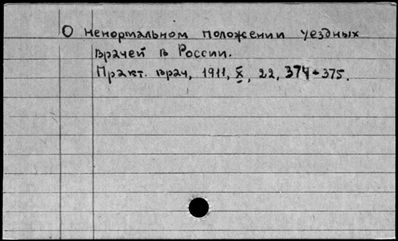 О ненормальном положении уездных
врачей в России.
Практ. врач, 1911, X, 22, 374-375.